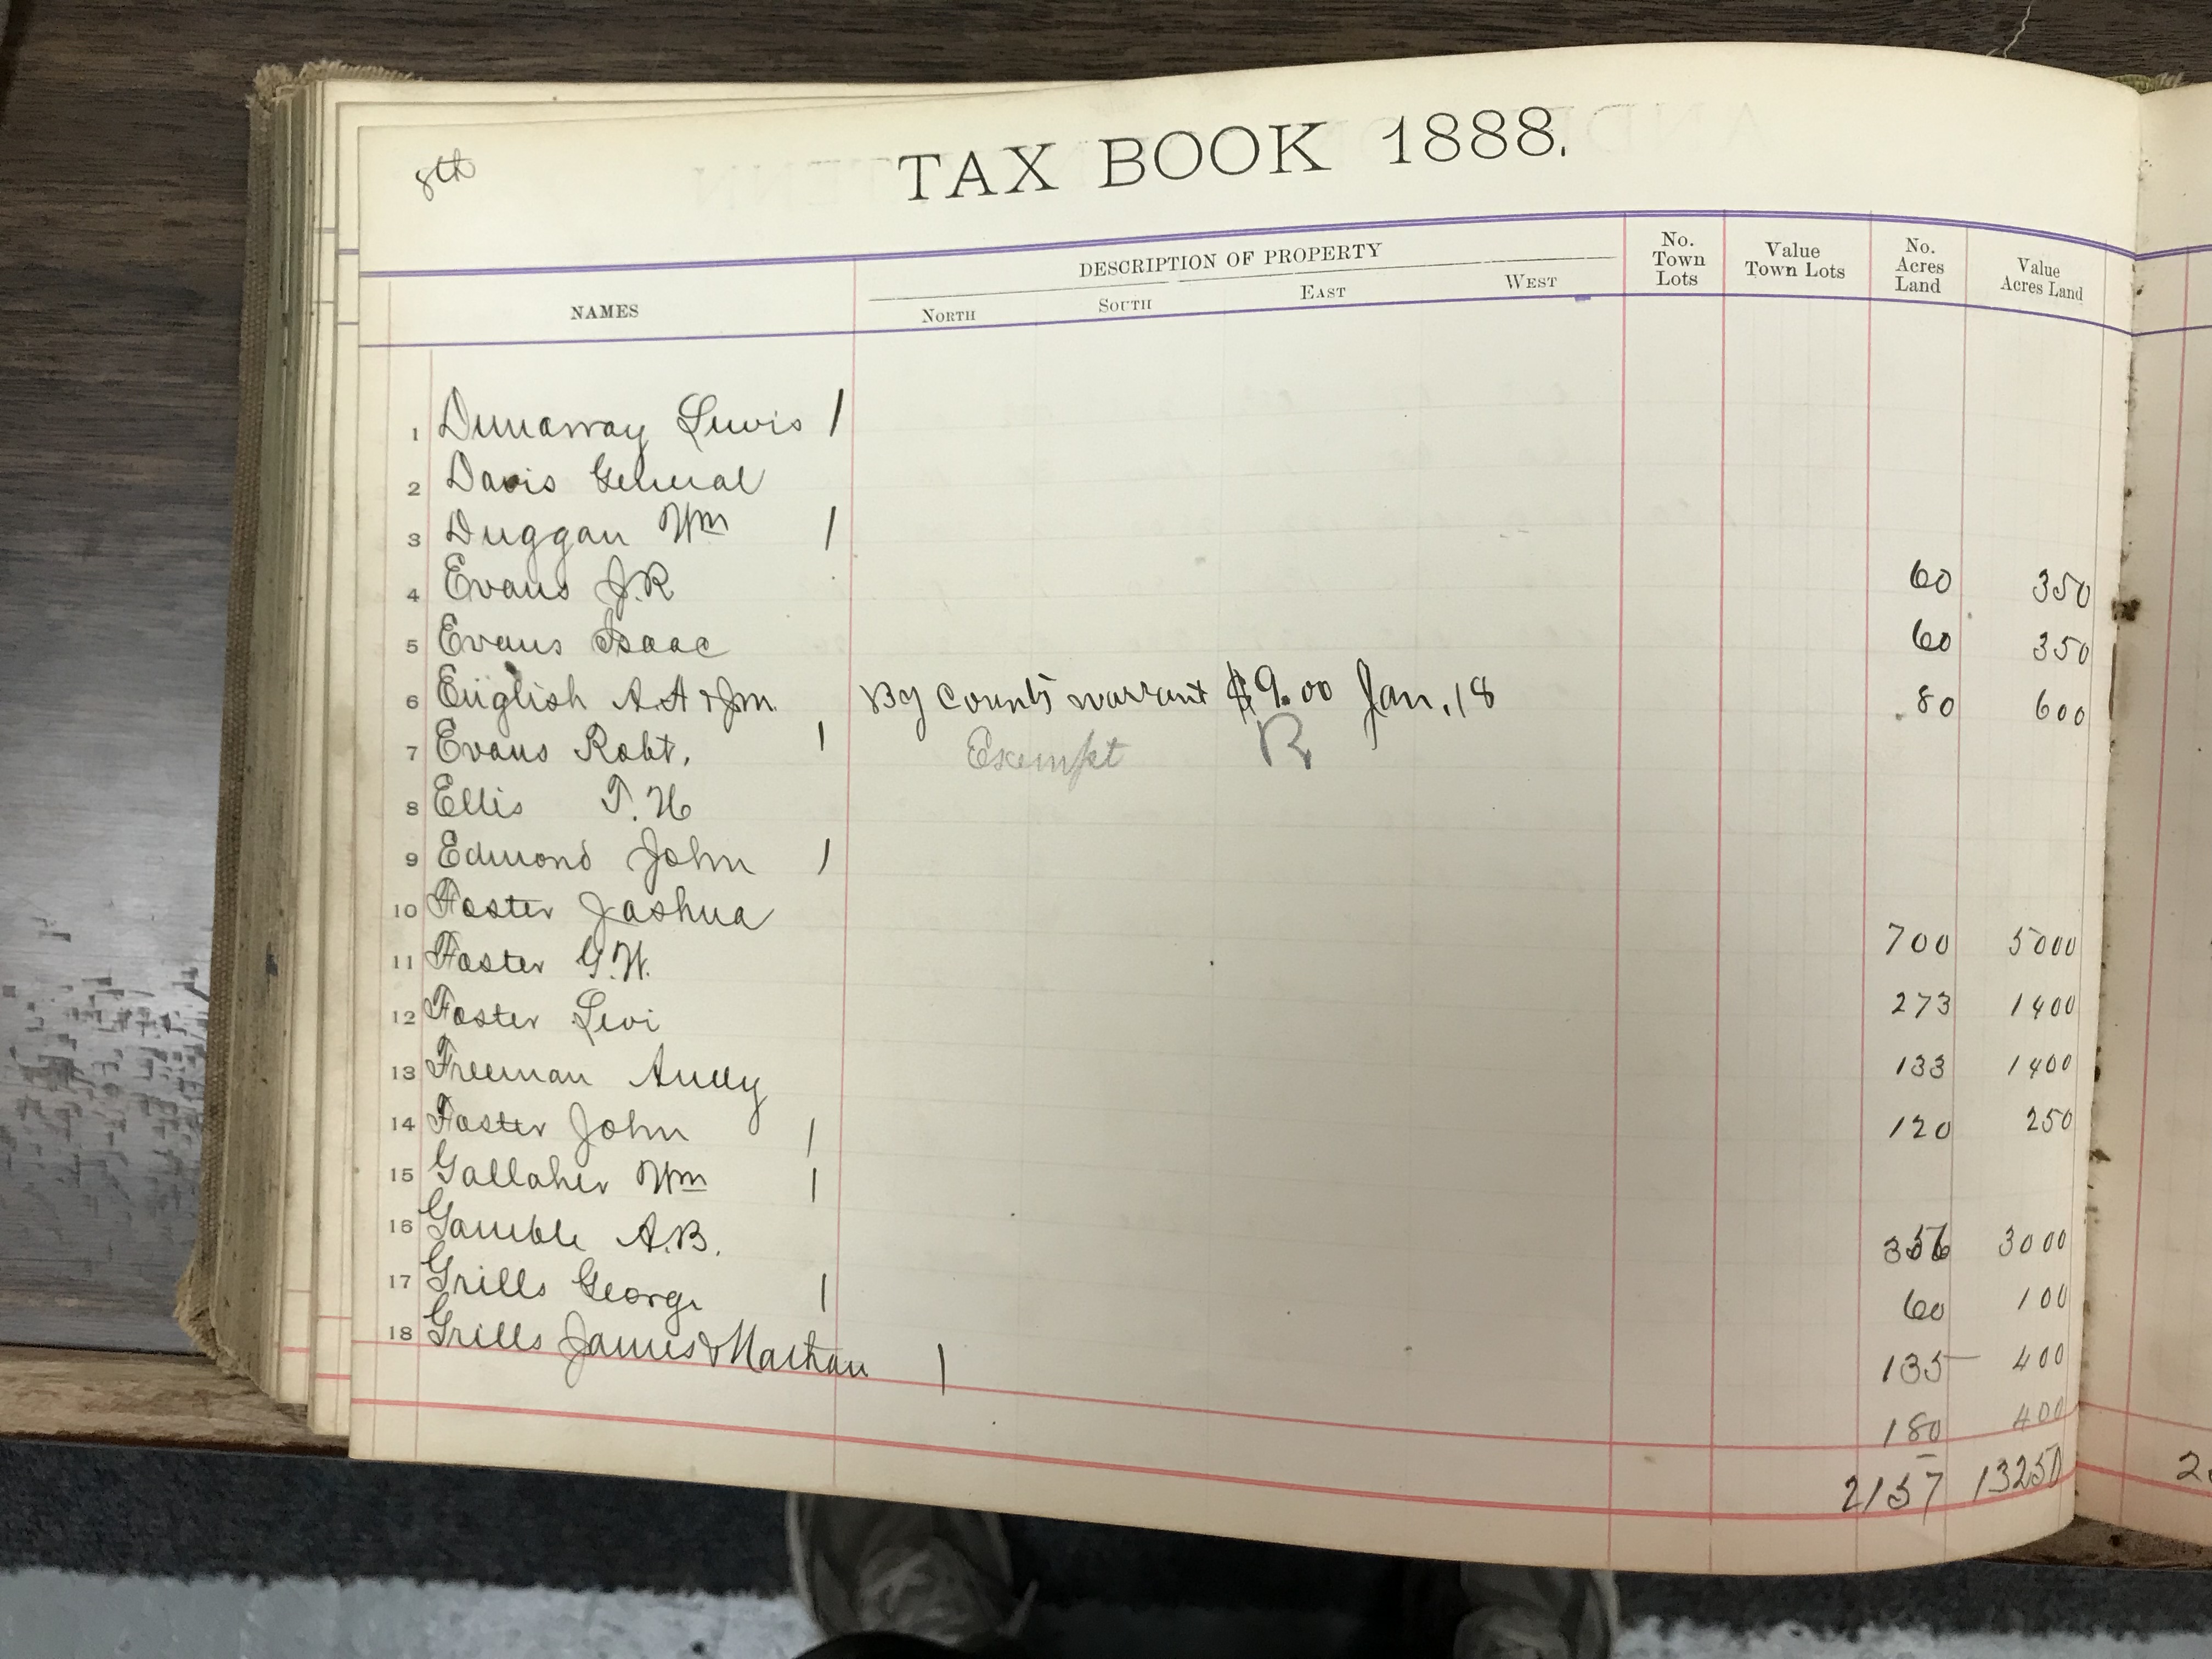 8th
TAX BOOK 1888.
NAMES
DESCRIPTION OF PROPERTY
North South East West
No. Town Lots
Value Town Lots
No. Acres Land
Value Acres Land
1 Dunaway Lewis 1
2 Davis General
3 Duggan Wm 1
4 Evans J.R 60 350
5 Evans Isaac 60 350
6 English A.A & Jm. By County warrant $9.00 Jan. 18 80 600
7 Evans Robt. 1 Exempt R
8 Ellis T. H
9 Edmond John 1
10 Foster Joshua 700 5000
11 Foster G.W. 273 1400
12 Foster Levi 133 1400
13 Freeman Andy 120 250
14 Foster John 1
15 Gallaher Wm 1 356 3000
16 Gamble A.B. 60 100
17 Grills George 1 135 400
18 Grills James & Nathan 1 180 400
2157 13250